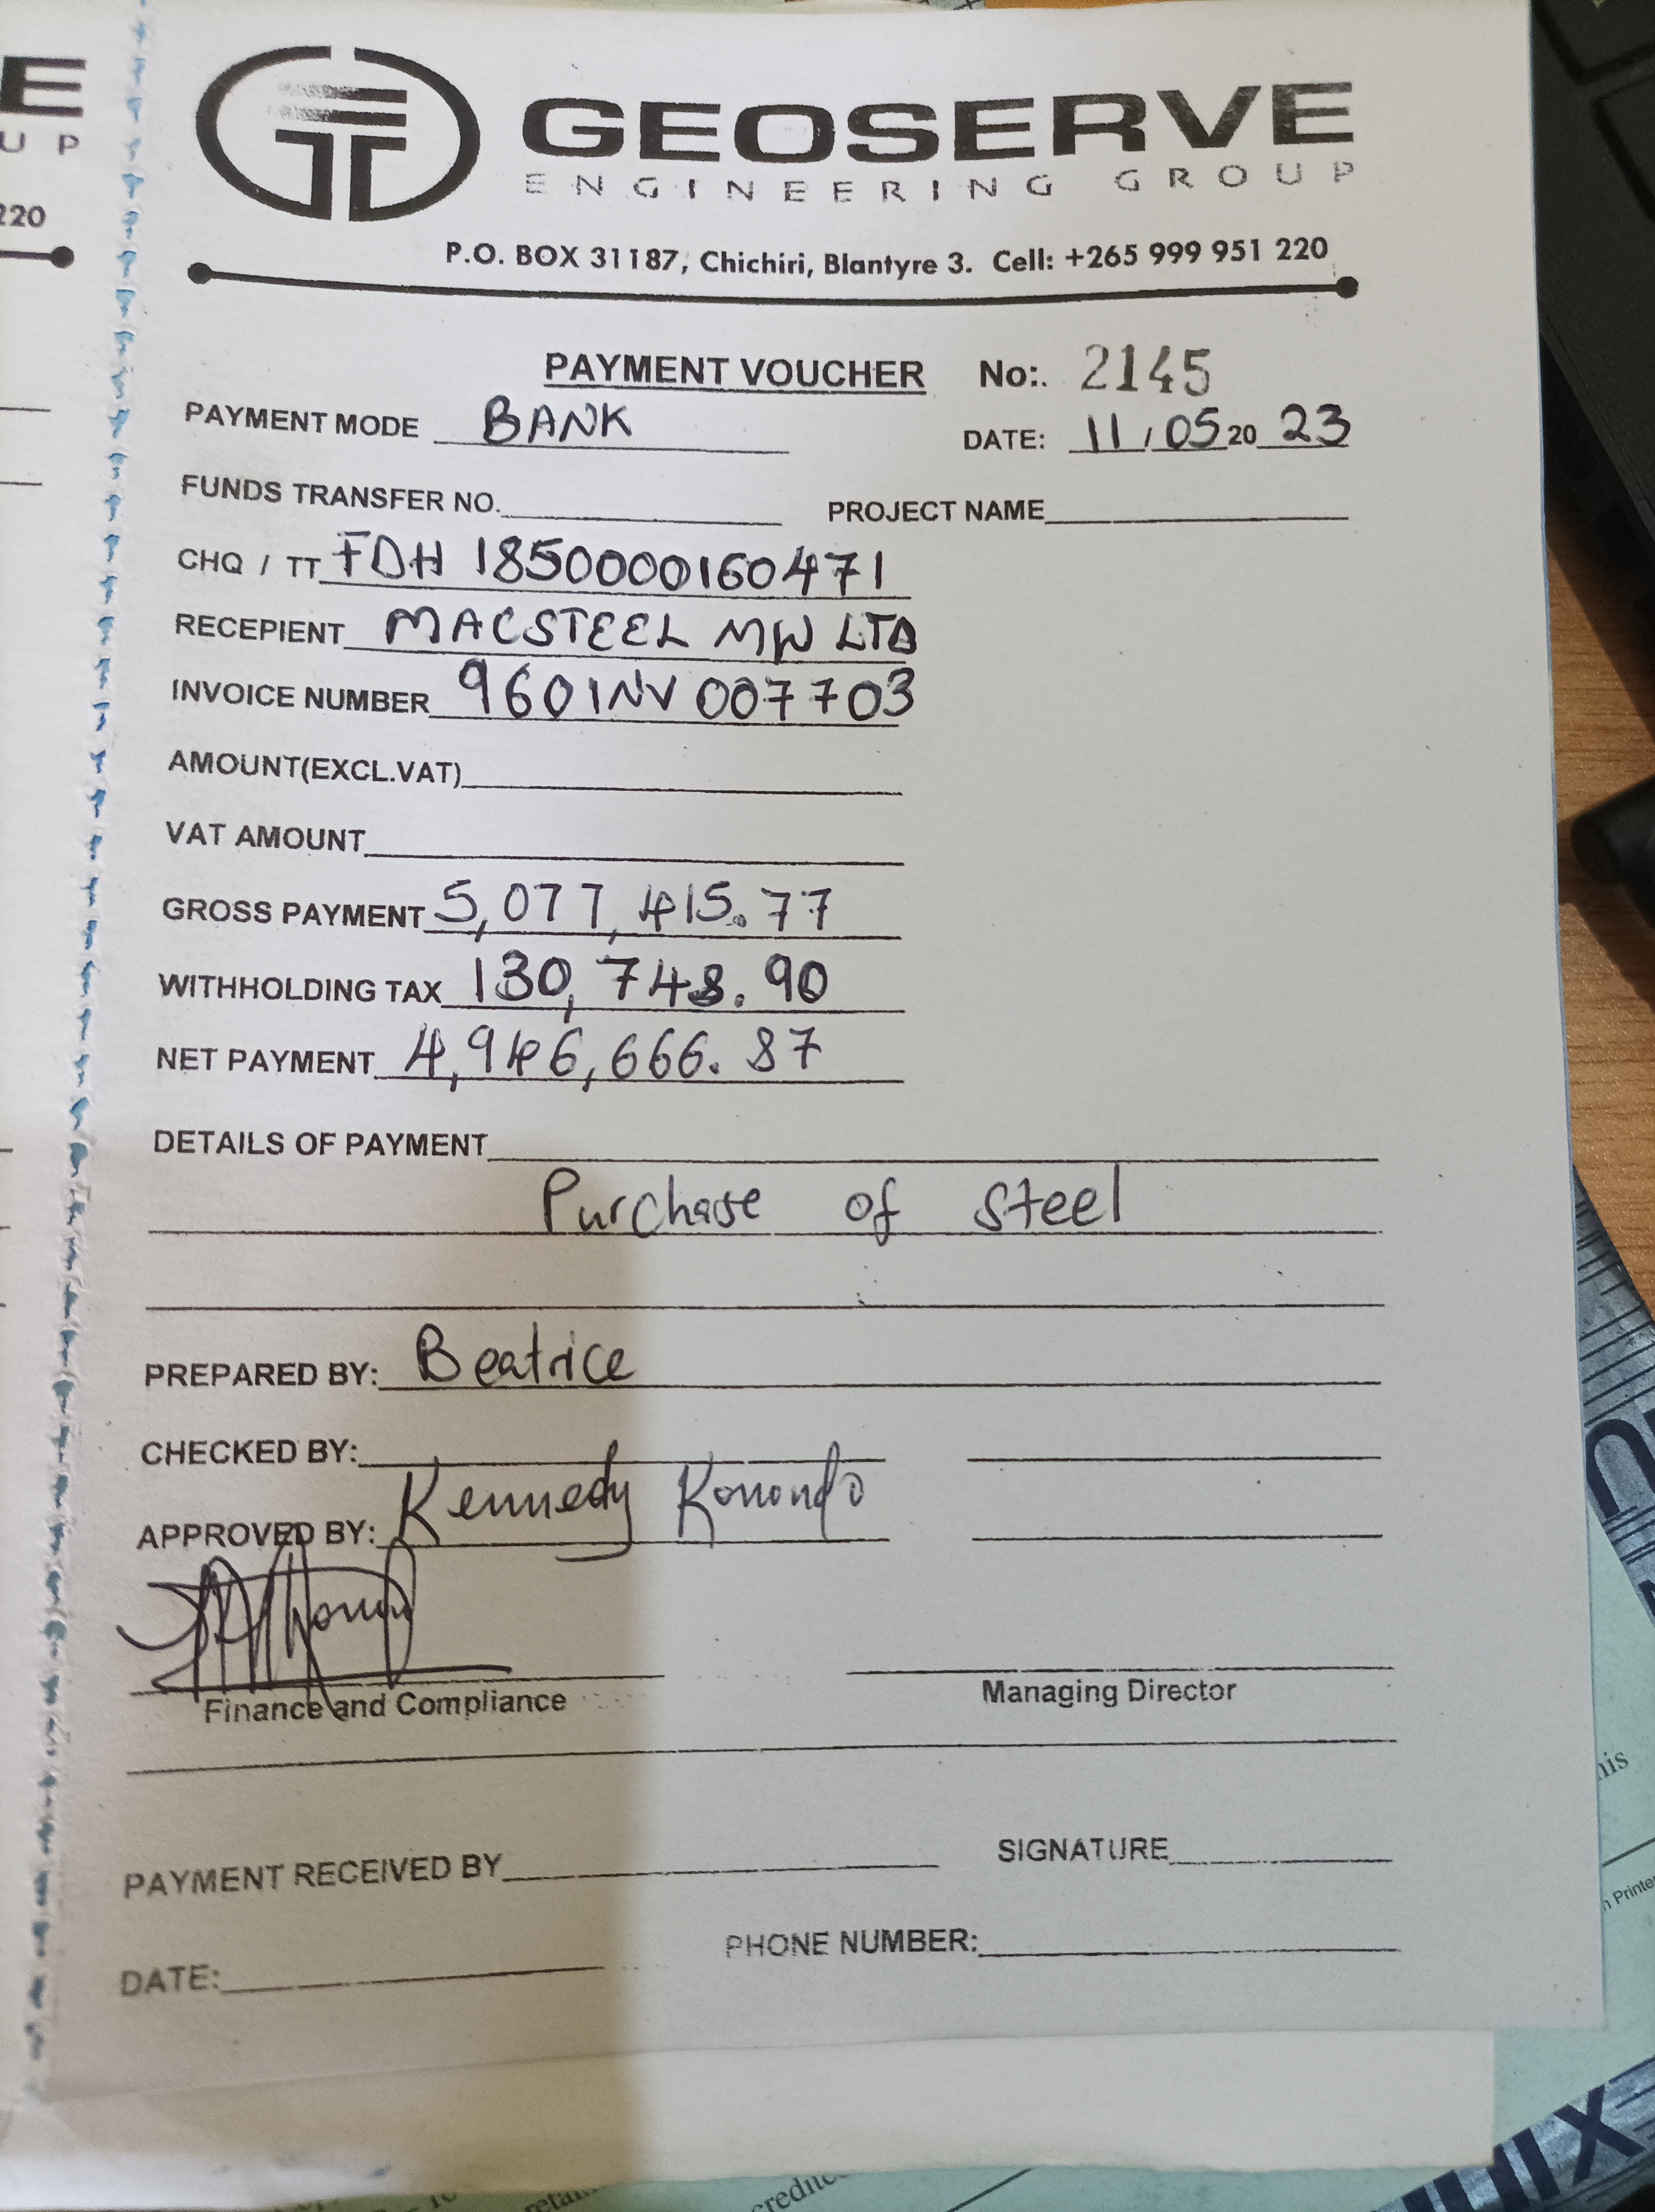 E
UP
220
GEOSERVE
ENGINEERING GROUP
P.O. BOX 31187, Chichiri, Blantyre 3. Cell: +265 999 951 220
PAYMENT VOUCHER No:. 2145
PAYMENT MODE BANK DATE: 11/05 20 23
FUNDS TRANSFER NO. PROJECT NAME
CHQ / TT FDH 1850000160471
RECEPIENT MACSTEEL MW LTD
INVOICE NUMBER 9601NV007703
AMOUNT(EXCL.VAT)
VAT AMOUNT
GROSS PAYMENT 5,077,415.77
WITHHOLDING TAX 130,748.90
NET PAYMENT 4,946,666.87
DETAILS OF PAYMENT
Purchase of steel
PREPARED BY: Beatrice
CHECKED BY:
APPROVED BY: Kennedy
Finance and Compliance Managing Director
PAYMENT RECEIVED BY SIGNATURE
PHONE NUMBER:
DATE: